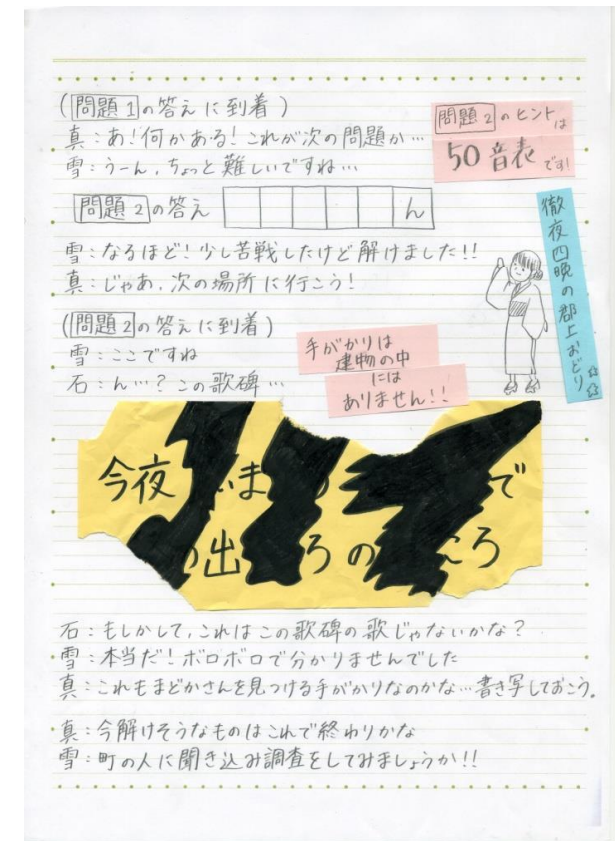 (問題1の答えに到着)
真:あ!何かある!これが次の問題か…
雪:うーん、ちょっと難しいですね…
問題2のヒントは
50音表です!
問題2の答え ん
徹夜四晩の郡上おどり☆☆
雪:なるほど!少し苦戦したけど解けました!!
真:じゃあ、次の場所に行こう!
(問題2の答えに到着)
雪:ここですね
石:ん…?この歌碑…
手がかりは
建物の中
には
ありません!!
今夜 ま で
出 ろの ころ
石:もしかして、これはこの歌碑の歌じゃないかな?
雪:本当だ!ボロボロで分かりませんでした
真:これもまどかさんを見つける手がかりなのかな…書き写しておこう。
真:今解けそうなものはこれで終わりかな
雪:町の人に聞き込み調査をしてみましょうか!!